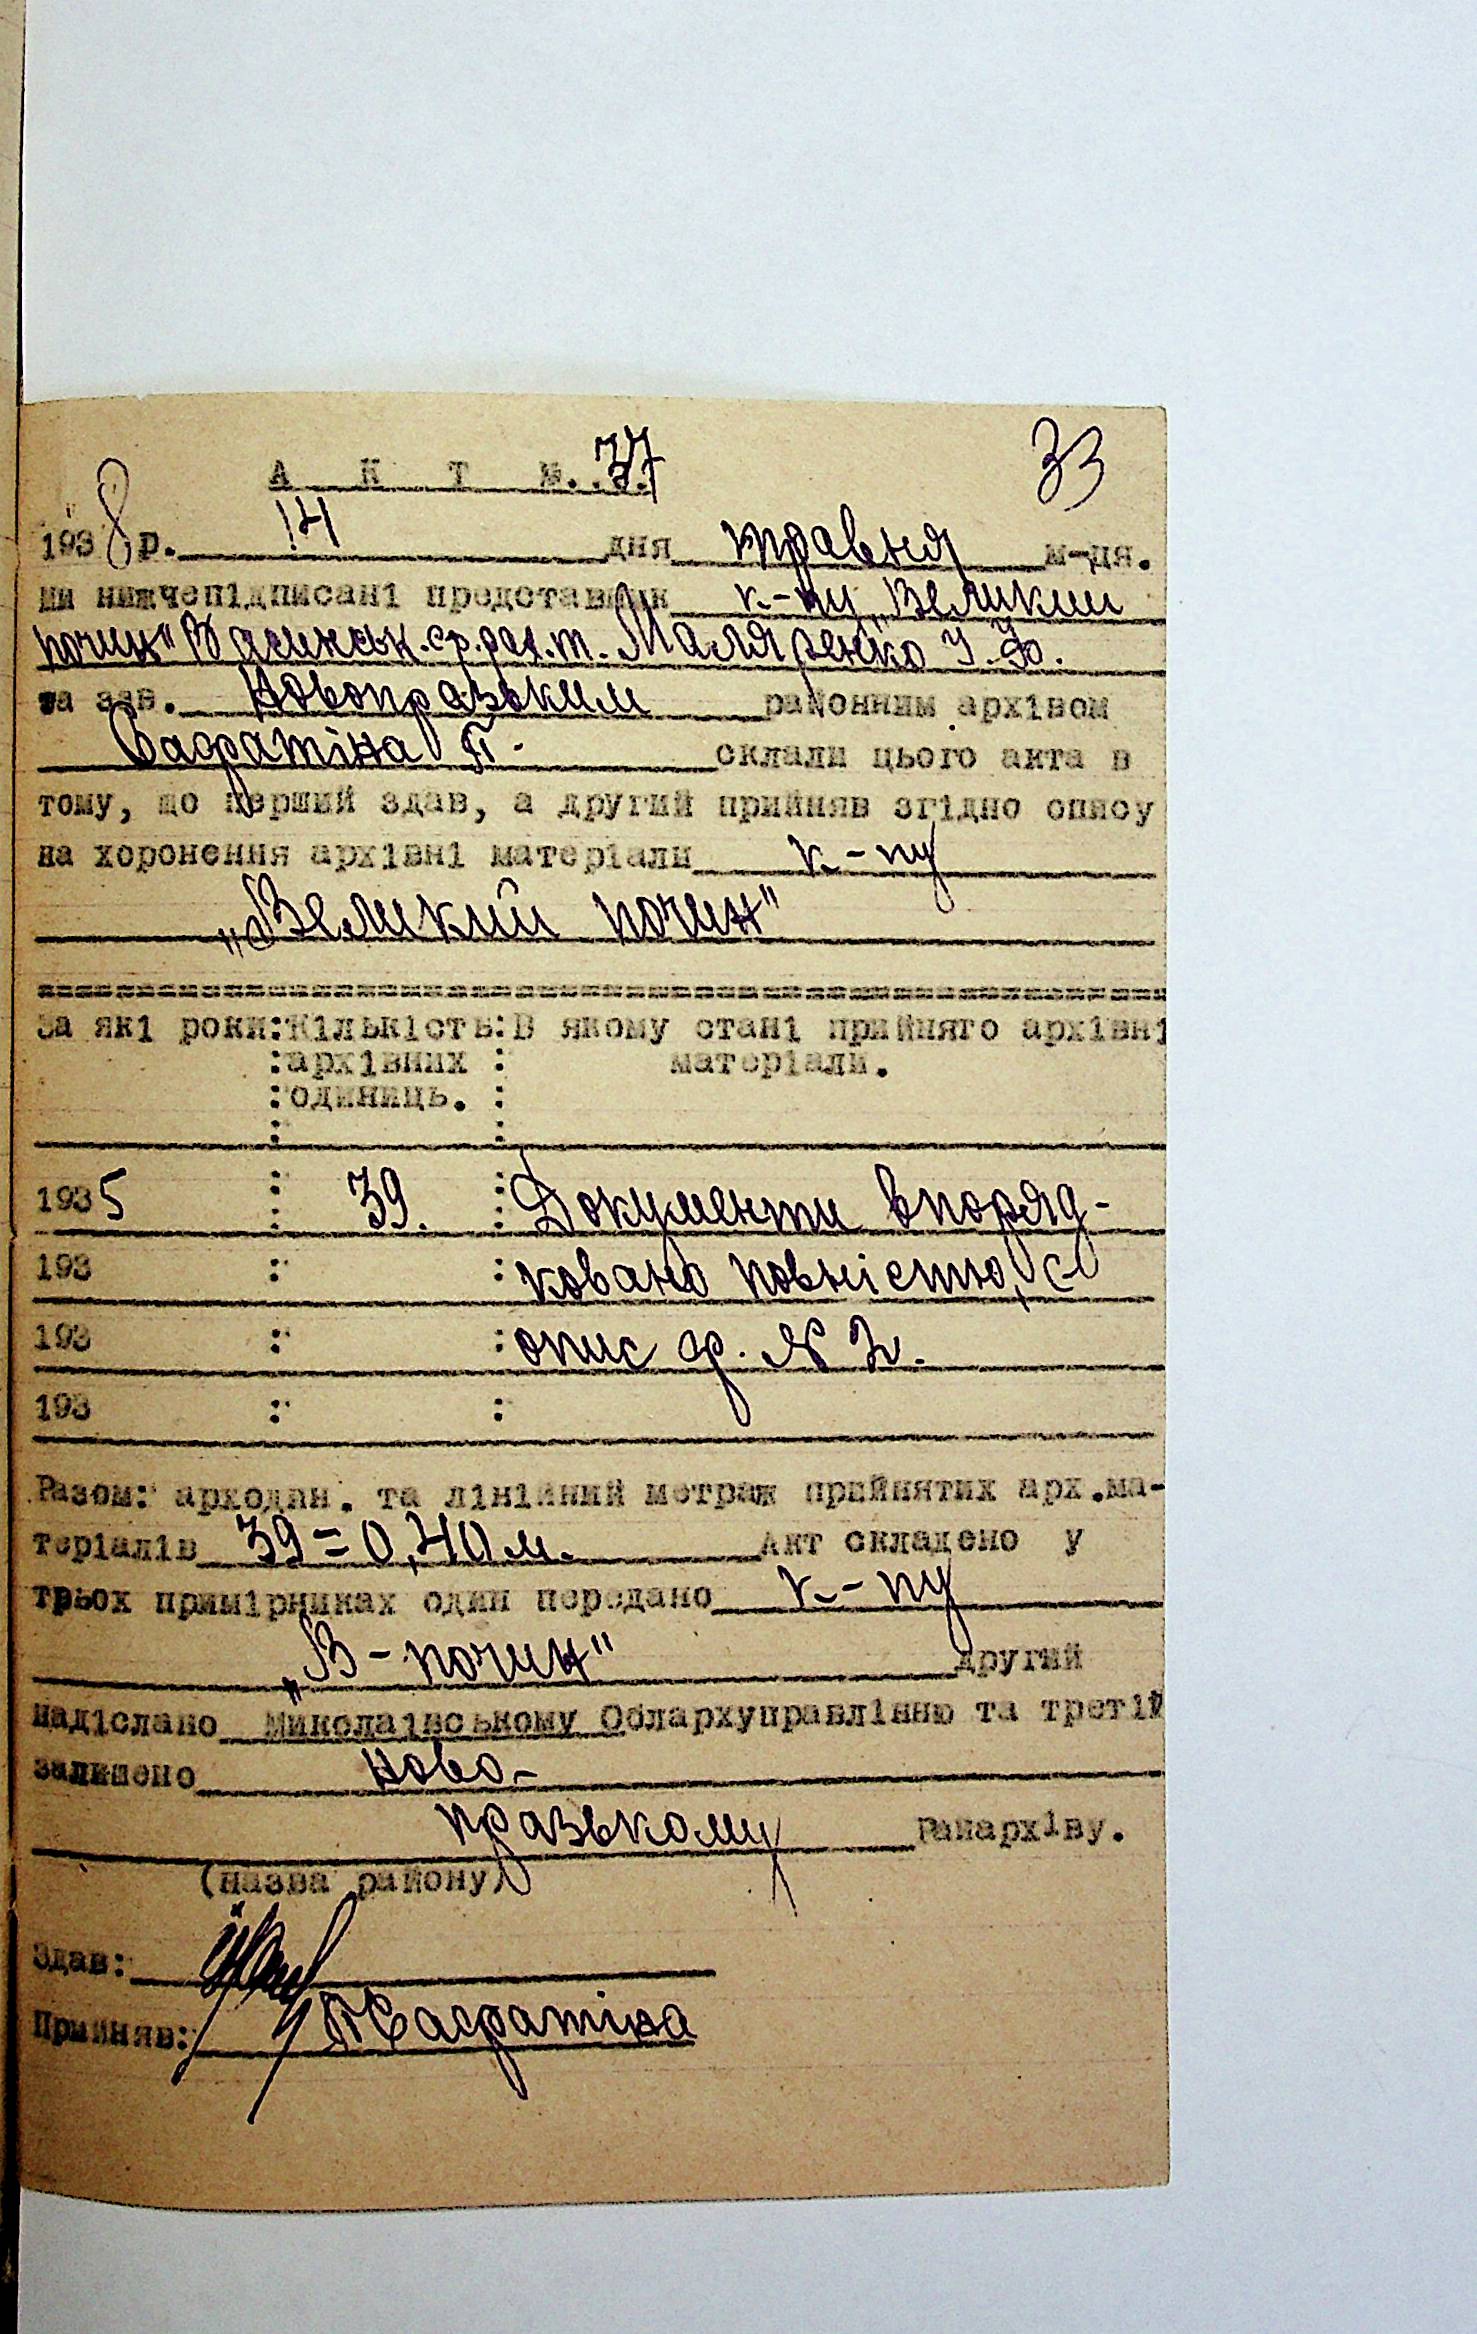 33
А К Т №. 37
1938 р. 14 дня травня м-ця.
ми нижчепідписані представник к-пу „Великий
почин" Васинськ.ср.рад.т. Маляренко І.Ю.
та зав. Новопразьким районним архівом
Сафратіна П. склали цього акта в
тому, що перший здав, а другий прийняв згідно опису
на хоронення архівні матеріали к-пу
„Великий почин"
За які роки:Кількість:В якому стані прийнято архівні
:архівних : матеріали.
:одиниць. :
1935 : 39. : Документи впоряд-
193 : : ковано повністю, є
193 : : опис ф. № 2.
193 : :
Разом: аркодин. та лінійний метраж прийнятих арх.ма-
теріалів 39=0,40м. Акт складено у
трьох примірниках один передано к-пу
„В-почин" другий
надіслано Миколаївському Облархуправлінню та третій
залишено Ново-
празькому Райархіву.
(назва району)
Здав:
Прийняв: ПСафратіна